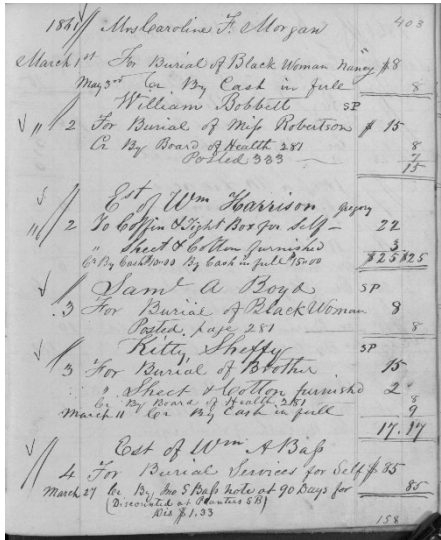 1861 Mrs Caroline F. Morgan 403
March 1st For Burial of Black Woman "Nancy" $8
May 3rd Cr By Cash in full 8
William Bobbett SP
" 2 For Burial of Miss Robertson $ 15
Cr By Board of Health 281 8
Posted 333 7
15
Est of Wm Harrison Gregory
" 2 To Coffin & Tight Box for Self - 22
" Sheet & Cotton furnished 3
Cr By Cash $10.00 By Cash in full $15.00 $25 $25
Saml A Boyd SP
3 For Burial of Black Woman 8
Posted page 281 8
Kitty Sheffy SP
3 For Burial of Brother 15
" Sheet & Cotton furnishd 2
Cr By Board of Health 281 8
March 11 Cr By Cash in full 9
17.17
Est of Wm A Bass
4 For Burial Services for Self $85
March 27 Cr By Jno S Bass note at 90 Days for 85
(Discounted at Planters S B)
Dis $1.33
158